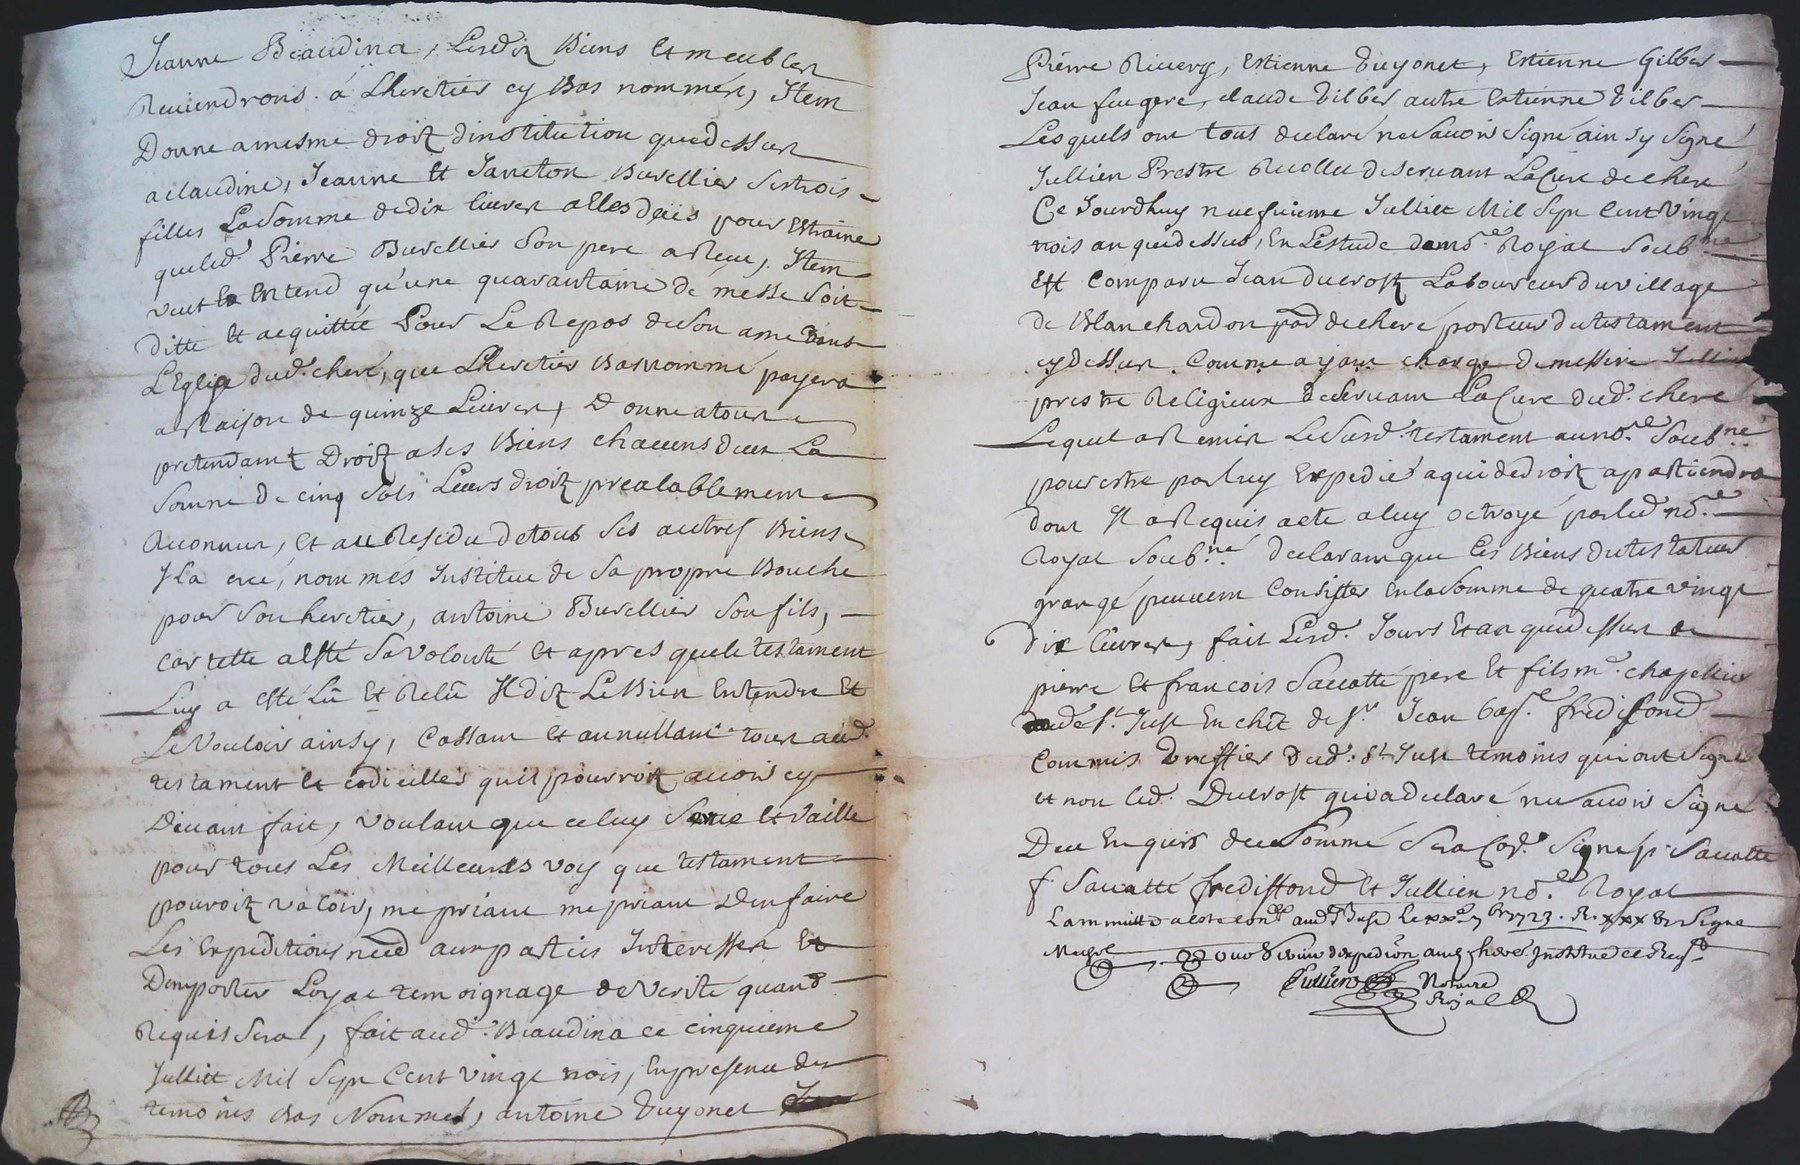 Jeanne Beaudina, Lesd.z Biens Et meubles
Reviendrons a Lheretier cy Bas nommér, Item
Donne a mesme droit dinstitution que dessus
a Claudine, Jeanne Et Janeton Burellier ses trois
filles La Somme de dix livres a elles deüs pour Estraine
que led. Pierre Burellier Son pere a Reçu, Item
veut Et Entend qu'une quarantaine de messe Soit
ditte Et acquittée Pour Le Repos de Son ame dans
LEglize dud. cheré, que Lheretier Basnommé payera
a Raison de quinze Livres, Donne a tous
pretendant Droit a ses Biens chacuns deux La
Somme de cinq Sols Leurs droit prealablement
Reconnus, Et au Residu de tous Ses autres Biens
Il a creé, nommes Institue de Sa propre Bouche
pour Son heretier, antoine Burellier Son fils,
Car telle a Esté Sa Volonté Et apres que le testament
Luy a esté Lû Et Relû Il dit Le Bien Entendre Et
Le Vouloir ainsy, Cassant Et annullant tous aud.
testament Et codicilles qu'il pourroit avoir cy
Devant fait, Voulant que celuy Serve Et Vaille
pour tous Les Meilleures voy que testament
pouroit valoir, me priant me priant Den faire
Les Expeditions aux parties Interessér Et
Demporter Loyal temoignage de Verité quand
Requis Sera, fait aud. Beaudina ce cinquieme
Julliet Mil Sept Cent vingt trois, En presence des
temoins Bas Nommes, antoine Duyonet
Pierre Rivery, Estienne Duyonet, Estienne Gilber
Jean fugere, claude Gilber autre Estienne Gilber
Lesquels ont tous declaré ne Savoir Signé ainsy Signé
Jullien Prestre Recollet deservant La Cure de cheré
Ce Jourdhuy neufvieme Julliet Mil Sept Cent Vingt
trois an que dessus, En Lestude de nore. Royal Soubne.
Est Comparu Jean ducrost Laboureur du village
de Blanchardon par.d de cheré porteur du testament
cy dessus Comme ayant charge de messire Jullien
prestre Religieux deservant La Cure dud. cheré
Lequel a Remis Le Susd. testament au no.re Soub.ne
pour estre par luy Expedié a qui de droit apartiendra
dont Il a Requis acte a luy octroyé par led. no.re
Royal Soub.né declarant que les Biens du testateur
grangé peuvent Consister En la Somme de quatre vingt
Dix livres, fait Lesd. Jours Et an que dessus
pierre Et francois Savatté pere Et fils m.d chapellier
de St. Just En chlt de Sr. Jean Bap.te fredissond
Commis Greffier Dud. St Just temoins qui ont Signé
et non led. Ducrost qui a declaré ne Savoir Signé
De ce Enquis dece Sommé Signe p. Savatte
f. Savatté fredissond Et Jullien no.re Royal